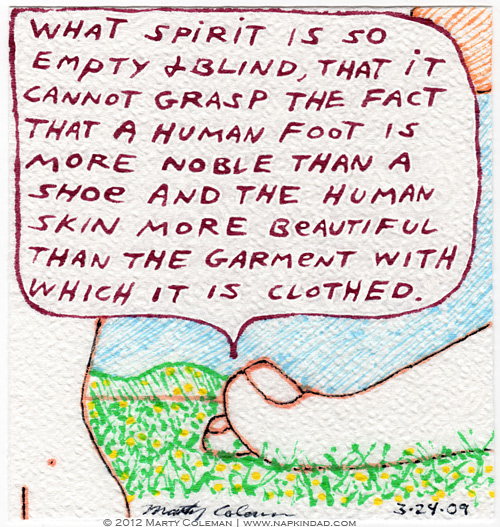 WHAT SPIRIT IS SO
EMPTY & BLIND, THAT IT
CANNOT GRASP THE FACT
THAT A HUMAN FOOT IS
MORE NOBLE THAN A
SHOE AND THE HUMAN
SKIN MORE BEAUTIFUL
THAN THE GARMENT WITH
WHICH IT IS CLOTHED.
Marty Coleman 3·24·09
© 2012 MARTY COLEMAN | WWW.NAPKINDAD.COM